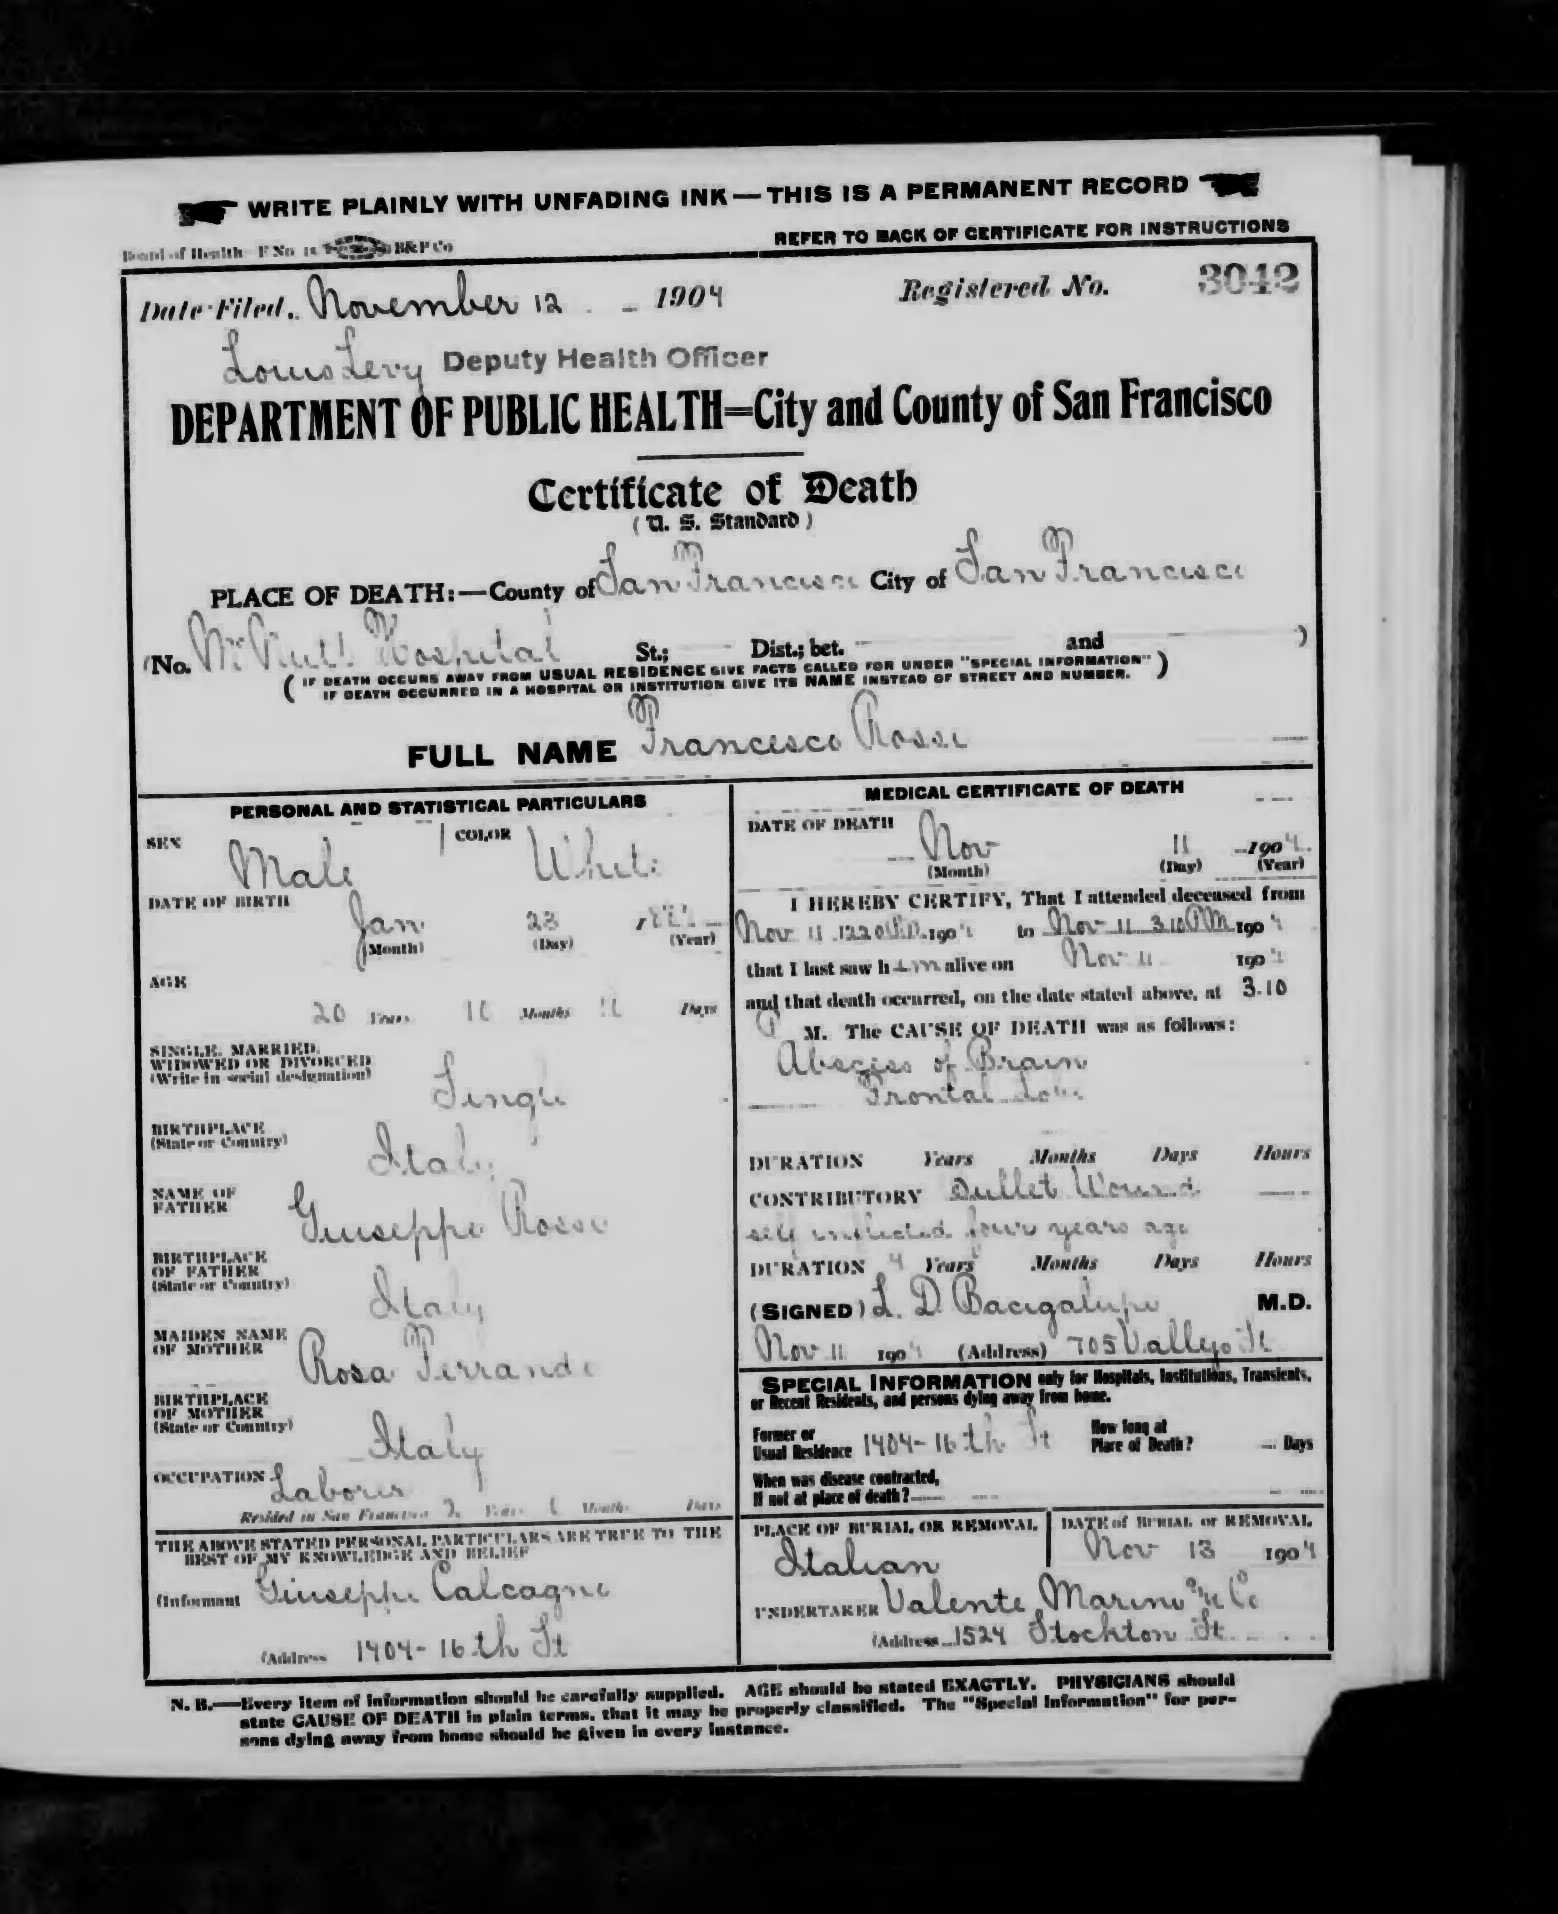 WRITE PLAINLY WITH UNFADING INK — THIS IS A PERMANENT RECORD
Board of Health F No 15 B&P Co
REFER TO BACK OF CERTIFICATE FOR INSTRUCTIONS
Date Filed, November 12 1904 Registered No. 3042
Louis Levy Deputy Health Officer
DEPARTMENT OF PUBLIC HEALTH=City and County of San Francisco
Certificate of Death
(U. S. Standard)
PLACE OF DEATH:—County of San Francisco City of San Francisco
(No. McNutt Hospital St.; Dist.; bet. and )
( IF DEATH OCCURS AWAY FROM USUAL RESIDENCE GIVE FACTS CALLED FOR UNDER "SPECIAL INFORMATION" )
IF DEATH OCCURRED IN A HOSPITAL OR INSTITUTION GIVE ITS NAME INSTEAD OF STREET AND NUMBER.
FULL NAME Francesco Rossi
PERSONAL AND STATISTICAL PARTICULARS
SEX Male COLOR White
DATE OF BIRTH
Jan 23 1
(Month) (Day) (Year)
AGE
20 Years Months Days
SINGLE, MARRIED,
WIDOWED OR DIVORCED
(Write in social designation)
Single
BIRTHPLACE
(State or Country)
Italy
NAME OF
FATHER
Giuseppe Rossi
BIRTHPLACE
OF FATHER
(State or Country)
Italy
MAIDEN NAME
OF MOTHER
Rosa Ferrando
BIRTHPLACE
OF MOTHER
(State or Country)
Italy
OCCUPATION Laborer
Resided in San Francisco 2 Years Months Days
THE ABOVE STATED PERSONAL PARTICULARS ARE TRUE TO THE
BEST OF MY KNOWLEDGE AND BELIEF
(Informant Giuseppe Calcagno
(Address 1404-16th St
MEDICAL CERTIFICATE OF DEATH
DATE OF DEATH
Nov 11 1904
(Month) (Day) (Year)
I HEREBY CERTIFY, That I attended deceased from
Nov 11 1220 P.M. 1904 to Nov 11 3.10 PM 1904
that I last saw him alive on Nov 11 1904
and that death occurred, on the date stated above, at 3.10
P M. The CAUSE OF DEATH was as follows:
Abscess of Brain
Frontal Lobe
DURATION Years Months Days Hours
CONTRIBUTORY Bullet Wound
self inflicted four years ago
DURATION 4 Years Months Days Hours
(SIGNED) L. D. Bacigalupi M.D.
Nov 11 1904 (Address) 705 Vallejo St
SPECIAL INFORMATION only for Hospitals, Institutions, Transients,
or Recent Residents, and persons dying away from home.
Former or
Usual Residence 1404-16th St
How long at
Place of Death? Days
When was disease contracted,
If not at place of death?
PLACE OF BURIAL OR REMOVAL
Italian
DATE of BURIAL or REMOVAL
Nov 13 1904
UNDERTAKER Valente Marini & Co
(Address 1524 Stockton St
N. B.—Every item of information should be carefully supplied. AGE should be stated EXACTLY. PHYSICIANS should
state CAUSE OF DEATH in plain terms, that it may be properly classified. The "Special Information" for per-
sons dying away from home should be given in every instance.